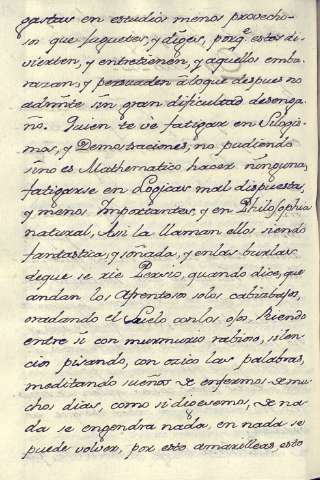 gastas en estudios menos provecho-
sos que juguetes, y diges, porq.e estos di-
vierten, y entretienen, y aquellos emba-
razan, y persuaden à loque despues no
admite sin gran dificultad desenga-
ño. Quien te vé fatigar en Silogis-
mos, y Demostraciones, no pudiendo
sino es Mathematico hacer ninguna,
fatigarse en Logicas mal dispuestas,
y menos Importantes, y en Philosophia
natural, Asi la llaman ellos siendo
fantastica, y soñada, y enlas burlas
deque se rie Persio, quando dice, que
andan los Afrentosos solos cabizbajos,
oradando el Suelo conlos ojos, Riendo
entre si con murmurio rabioso, silen-
cio pisando, con ozico las palabras,
meditando sueños de enfermos de mu-
chos dias, como si dixesemos, de na-
da se engendra nada, en nada se
puede volver, por esto amarilleas, esto